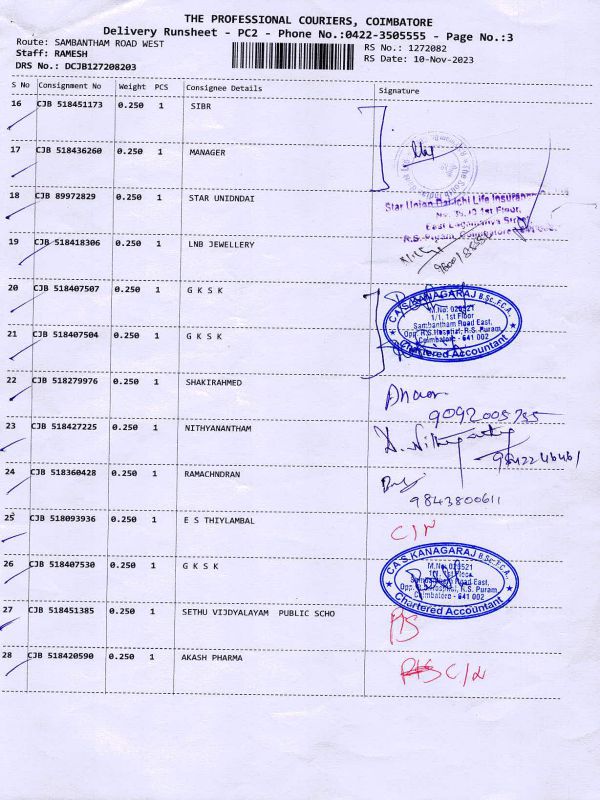 THE PROFESSIONAL COURIERS, COIMBATORE
Delivery Runsheet - PC2 - Phone No.:0422-3505555 - Page No.:3
Route: SAMBANTHAM ROAD WEST
RS No.: 1272082
Staff: RAMESH
RS Date: 10-Nov-2023
DRS No.: DCJB127208203
S No Consignment No Weight PCS Consignee Details Signature
16 CJB 518451173 0.250 1 SIBR
17 CJB 518436260 0.250 1 MANAGER
18 CJB 89972829 0.250 1 STAR UNIDNDAI
Star Union Dai-ichi Life Insurance
1st Floor,
East Street
R.S. Puram, Coimbatore
19 CJB 518418306 0.250 1 LNB JEWELLERY
20 CJB 518407507 0.250 1 G K S K
C.A.S.KANAGARAJ B.Sc.,F.C.A.,
M.No: 029521
1/1, 1st Floor
Sambantham Road East,
Opp. R.S.Hospital, R.S. Puram,
Coimbatore - 641 002
Chartered Accountant
21 CJB 518407504 0.250 1 G K S K
22 CJB 518279976 0.250 1 SHAKIRAHMED
9092005755
23 CJB 518427225 0.250 1 NITHYANANTHAM
24 CJB 518360428 0.250 1 RAMACHNDRAN
9843800611
25 CJB 518093936 0.250 1 E S THIYLAMBAL
C/N
26 CJB 518407530 0.250 1 G K S K
C.A.S.KANAGARAJ B.Sc.,F.C.A.,
M.No: 029521
1/1, 1st Floor
Sambantham Road East,
Opp. R.S.Hospital, R.S. Puram,
Coimbatore - 641 002
Chartered Accountant
27 CJB 518451385 0.250 1 SETHU VIJDYALAYAM PUBLIC SCHO
28 CJB 518420590 0.250 1 AKASH PHARMA
C/N